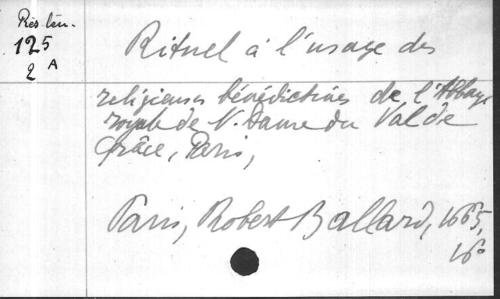 Rés lén.
125
2 A
Rituel à l'usage des
religieuses bénédictines de l'Abbaye
royale de N. Dame du Val de
Grâce, Paris,
Paris, Robert Ballard, 1665,
16°